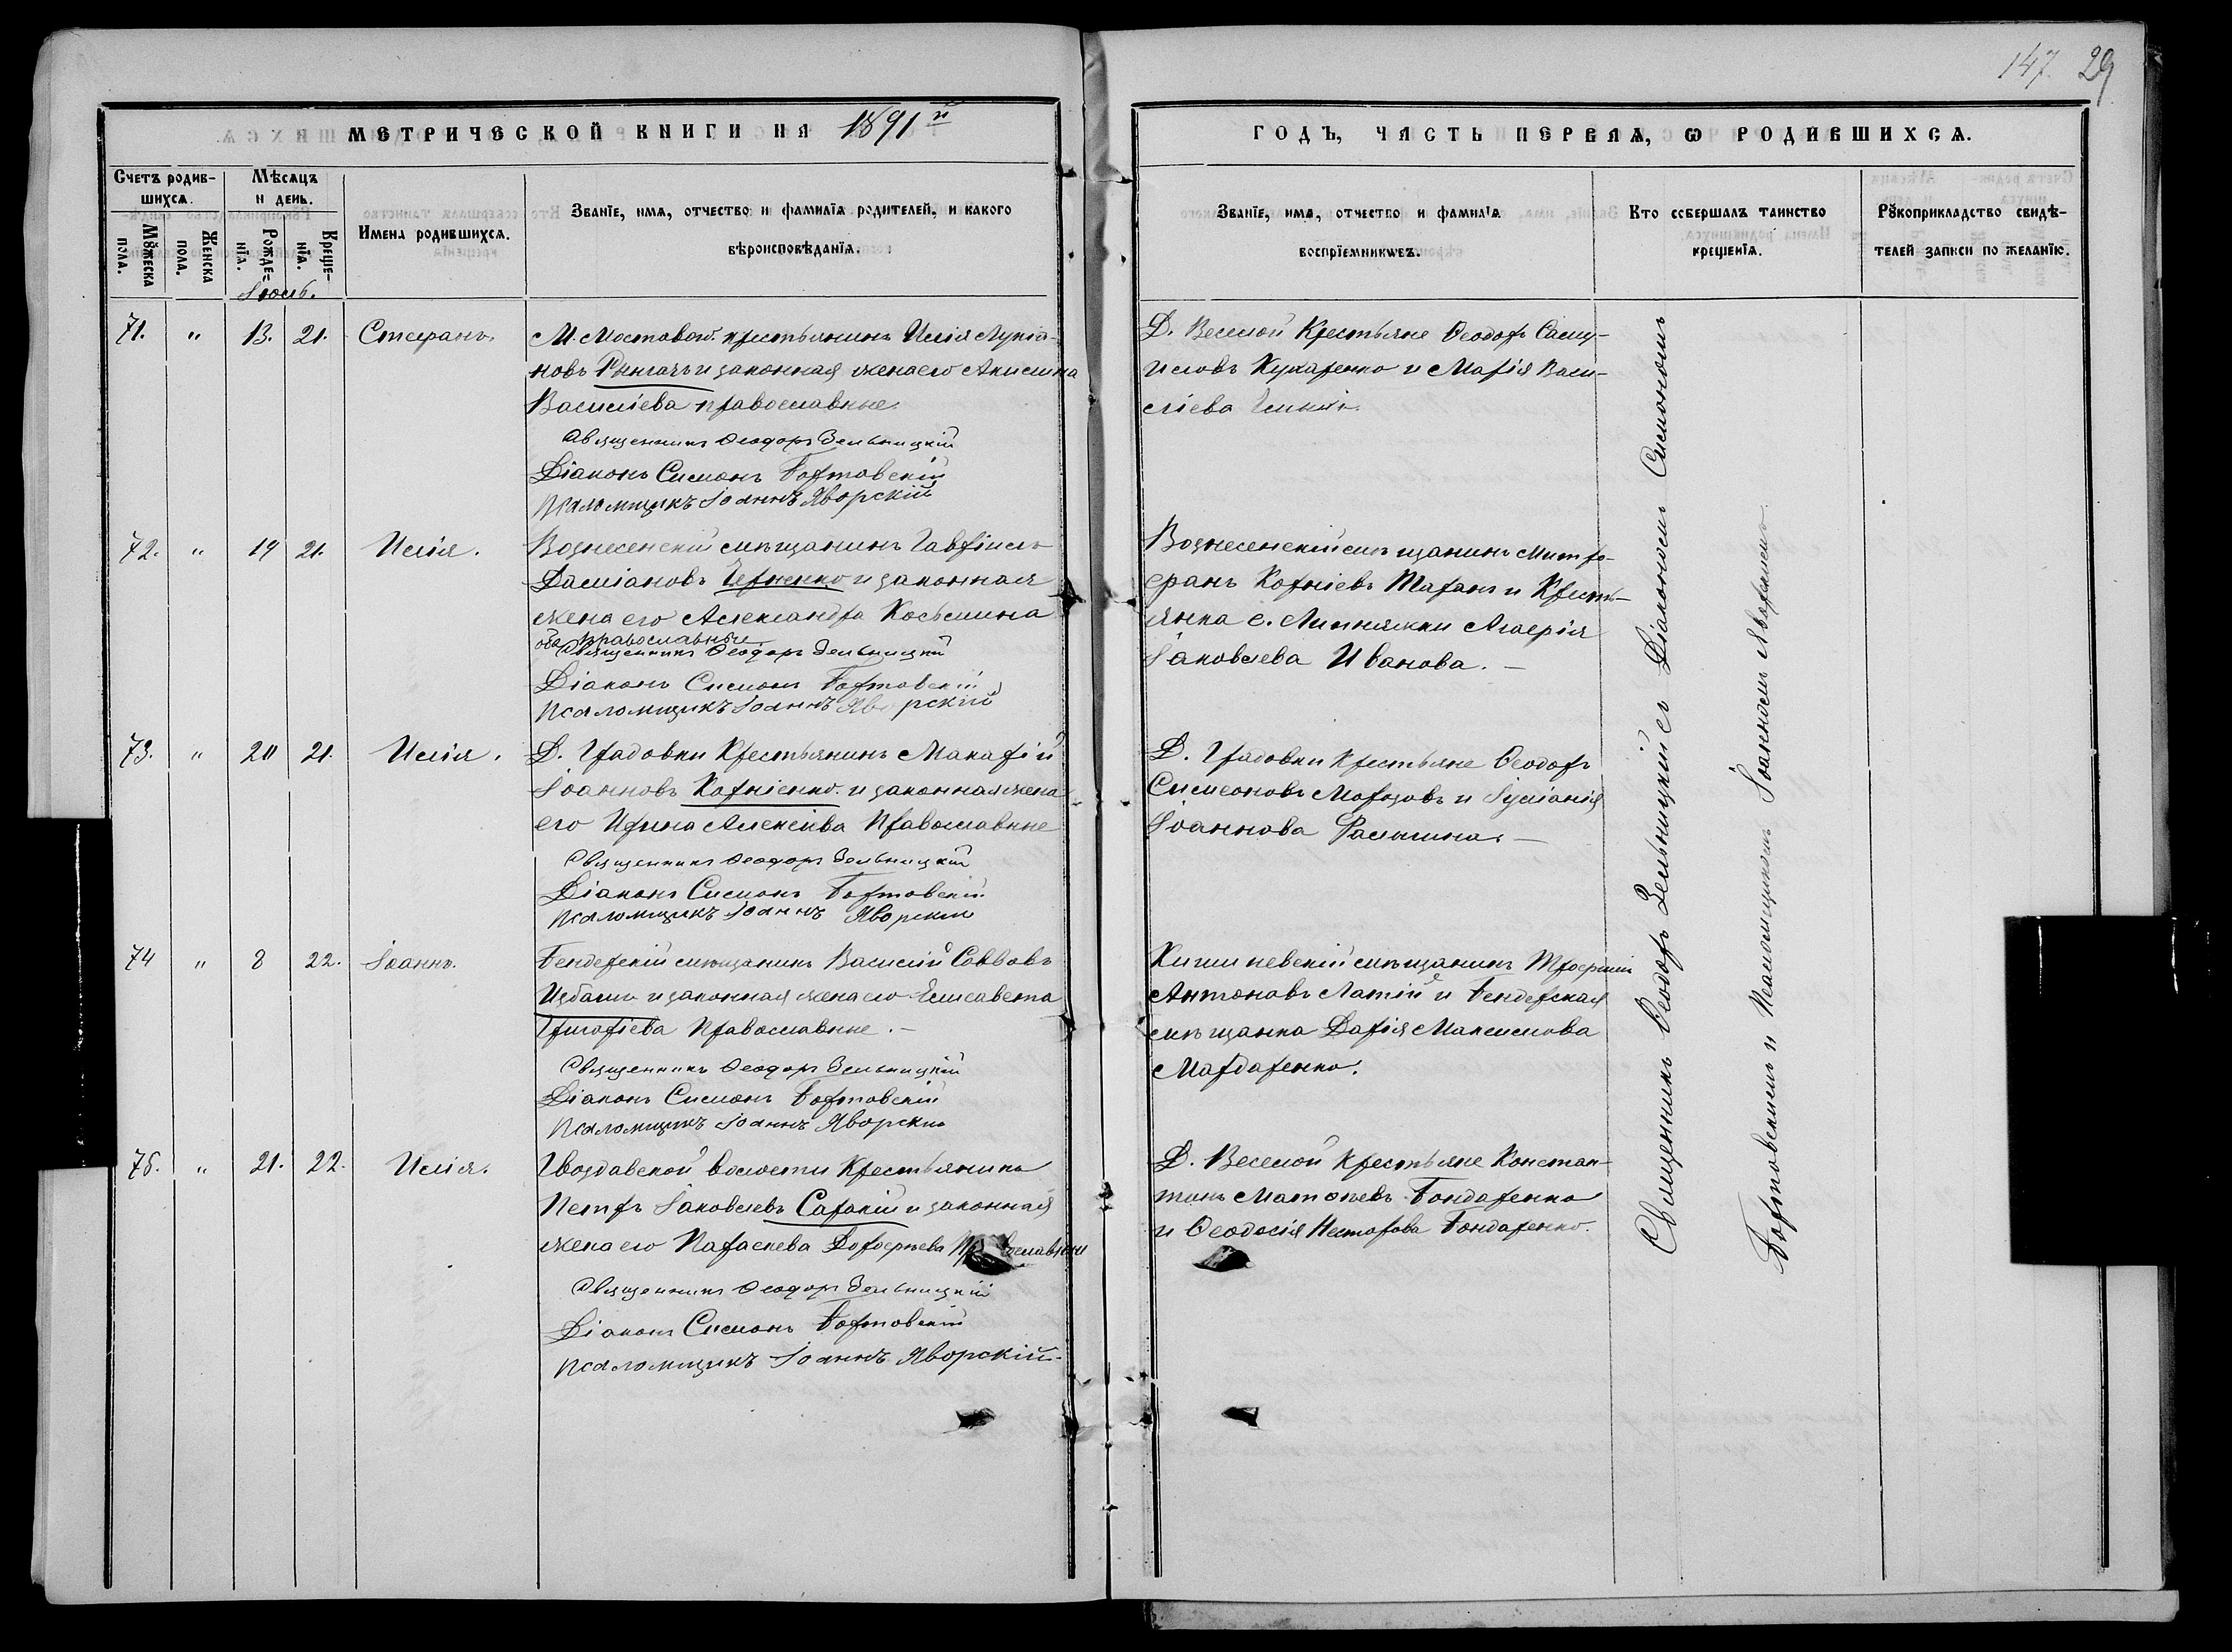 147. 29
МЕТРИЧЕСКОЙ КНИГИ НА 1891й
ГОДЪ, ЧАСТЬ ПЕРВАЯ, Ѡ РОДИВШИХСѦ.
Счетъ родив-
шихсѧ.
Мѣсѧцъ
и день.
Мꙋжеска
пола.
Женска
пола.
Рожде-
нїѧ.
Креще-
нїѧ.
Имена родившихсѧ.
Званїе, имѧ, отчество и фамилїѧ родителей, и какого
вѣроисповѣданїѧ.
Званїе, имѧ, отчество и фамилїѧ
воспрїемникѡвъ.
Кто совершалъ таинство
крещенїѧ.
Рꙋкоприкладство свидѣ-
телей записи по желанїю.
71. " 13. 21. Стефанъ.
М. Мостоваго крестьянинъ Илія Лукіа-
новъ и законная жена его Акилина
Василіева православные.
Священникъ Ѳеодоръ Зельницкій
Діаконъ Симонъ Бортовскій
Псаломщикъ Іоаннъ Яворскій
Д. Веселой Крестьяне Ѳеодоръ Саму-
иловъ Кухаренко и Марія Васи-
ліева
72. " 19 21. Илія.
Вознесенскій мѣщанинъ Гавріилъ
Даміановъ Черненко и законная
жена его Александра Косьмина
оба православные
Священникъ Ѳеодоръ Зельницкій
Діаконъ Симонъ Бортовскій
Псаломщикъ Іоаннъ Яворскій
Вознесенскій мѣщанинъ Митро-
фанъ Корніевъ Таранъ и Кресть-
янка с. Липняжки Агафія
Іаковлева Иванова. —
73. " 20 21. Илія.
Д. Градовки Крестьянинъ Макарій
Іоанновъ Корніенко и законная жена
его Ирина Алексіева Православные
Священникъ Ѳеодоръ Зельницкій
Діаконъ Симонъ Бортовскій
Псаломщикъ Іоаннъ Яворскій
Д. Градовки Крестьяне Ѳеодоръ
Симеоновъ Морозовъ и Іуліанія
Іоаннова —
74 " 8 22. Іоаннъ.
Бендерскій мѣщанинъ Василій Саввовъ
Избаша и законная жена его Елисавета
Григоріева Православные. —
Священникъ Ѳеодоръ Зельницкій
Діаконъ Симонъ Бортовскій
Псаломщикъ Іоаннъ Яворскій
Кишиневскій мѣщанинъ Трофимъ
Антоновъ Латій и Бендерская
мѣщанка Дарія Максимова
Мардаренко.
75. " 21. 22. Илія.
Гвоздавской волости Крестьянинъ
Петръ Іаковлевъ Саракій и законная
жена его Параскева Дороѳеева Православные
Священникъ Ѳеодоръ Зельницкій
Діаконъ Симонъ Бортовскій
Псаломщикъ Іоаннъ Яворскій
Д. Веселой Крестьяне Констан-
тинъ Матѳеевъ Бондаренко
и Ѳеодосія Несторова Бондаренко.
Священникъ Ѳеодоръ Зельницкій съ Діакономъ Симономъ
Бортовскимъ и Псаломщикомъ Іоанномъ Яворскимъ